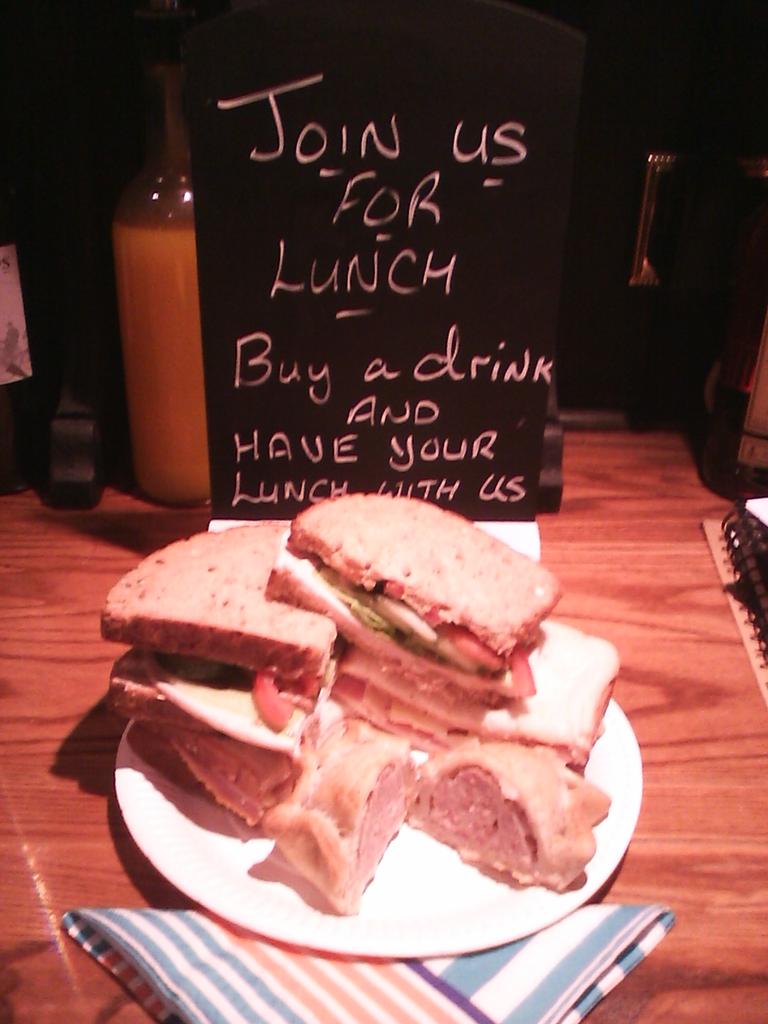 JOIN US
FOR
LUNCH
Buy a drink
AND
HAVE YOUR
LUNCH WITH US